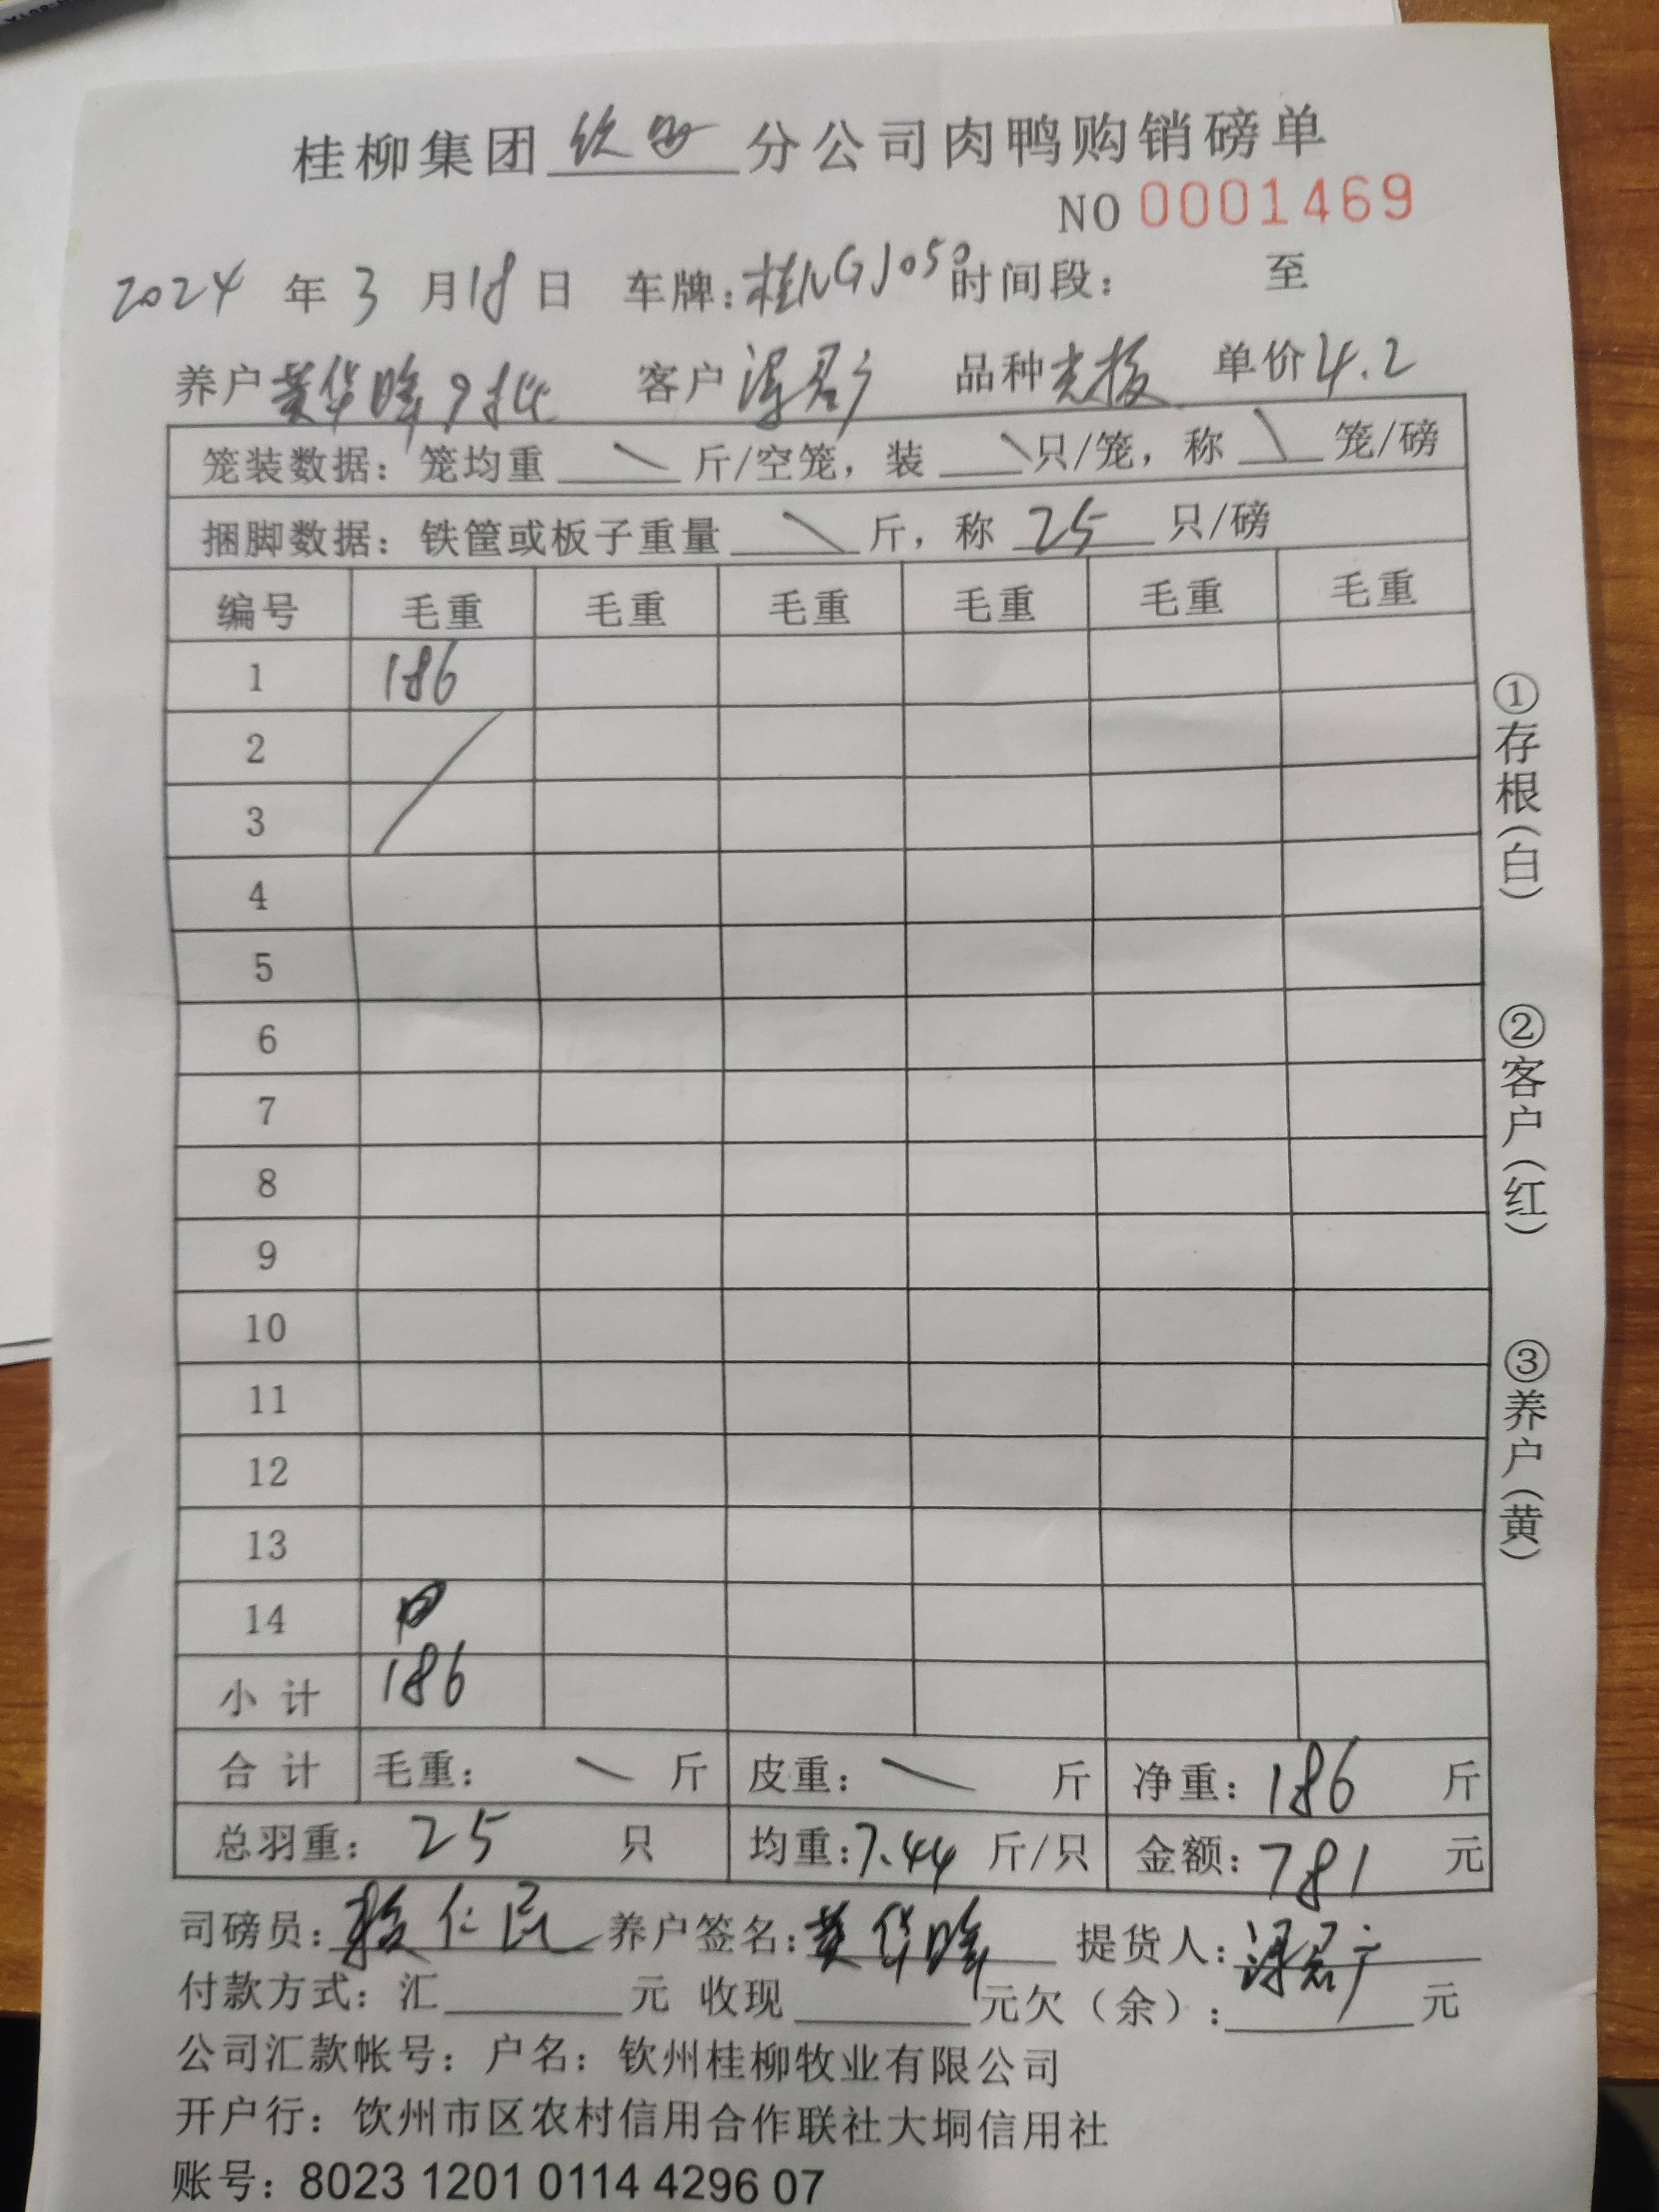 桂柳集团 钦州 分公司肉鸭购销磅单
NO 0001469
2024 年 3 月 18 日 车牌:桂NGJ050 时间段: 至
养户 黄华 9批 客户 品种 光板 单价 4.2
笼装数据:笼均重 \ 斤/空笼,装 \ 只/笼,称 \ 笼/磅
捆脚数据:铁筐或板子重量 \ 斤,称 25 只/磅
编号 毛重 毛重 毛重 毛重 毛重 毛重
1 186
2
3
4
5
6
7
8
9
10
11
12
13
14
小计 186
合计 毛重: \ 斤 皮重: \ 斤 净重: 186 斤
总羽重: 25 只 均重:7.44 斤/只 金额: 781 元
司磅员: 仁民 养户签名:黄华 提货人:
付款方式:汇 元 收现 元欠(余): 元
公司汇款帐号:户名:钦州桂柳牧业有限公司
开户行:饮州市区农村信用合作联社大垌信用社
账号:8023 1201 0114 4296 07
①存根(白)
②客户(红)
③养户(黄)